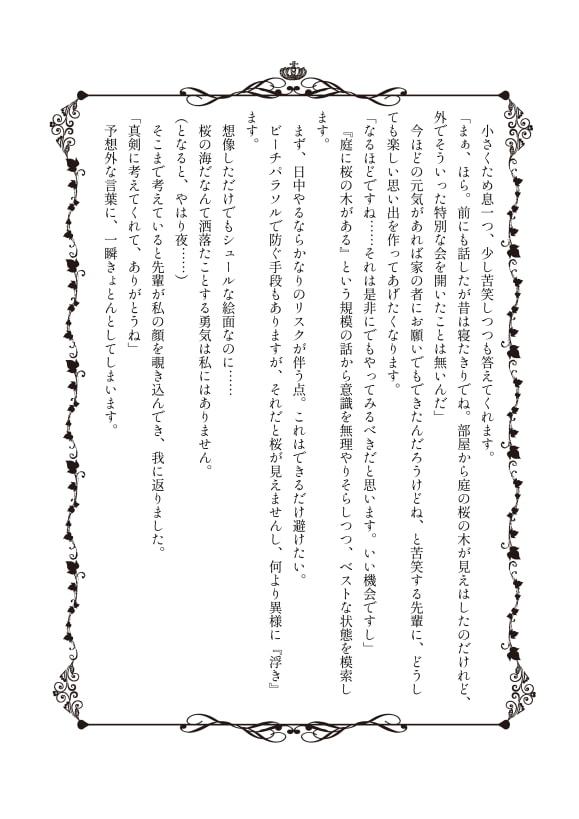 小さくため息一つ、少し苦笑しつつも答えてくれます。
「まぁ、ほら。前にも話したが昔は寝たきりでね。部屋から庭の桜の木が見えはしたのだけれど、
外でそういった特別な会を開いたことは無いんだ」
今ほどの元気があれば家の者にお願いでもできたんだろうけどね、と苦笑する先輩に、どうし
ても楽しい思い出を作ってあげたくなります。
「なるほどですね……それは是非にでもやってみるべきだと思います。いい機会ですし」
『庭に桜の木がある』という規模の話から意識を無理やりそらしつつ、ベストな状態を模索し
ます。
まず、日中やるならかなりのリスクが伴う点。これはできるだけ避けたい。
ビーチパラソルで防ぐ手段もありますが、それだと桜が見えませんし、何より異様に『浮き』
ます。
想像しただけでもシュールな絵面なのに……
桜の海だなんて洒落たことする勇気は私にはありません。
(となると、やはり夜……)
そこまで考えていると先輩が私の顔を覗き込んでき、我に返りました。
「真剣に考えてくれて、ありがとうね」
予想外な言葉に、一瞬きょとんとしてしまいます。